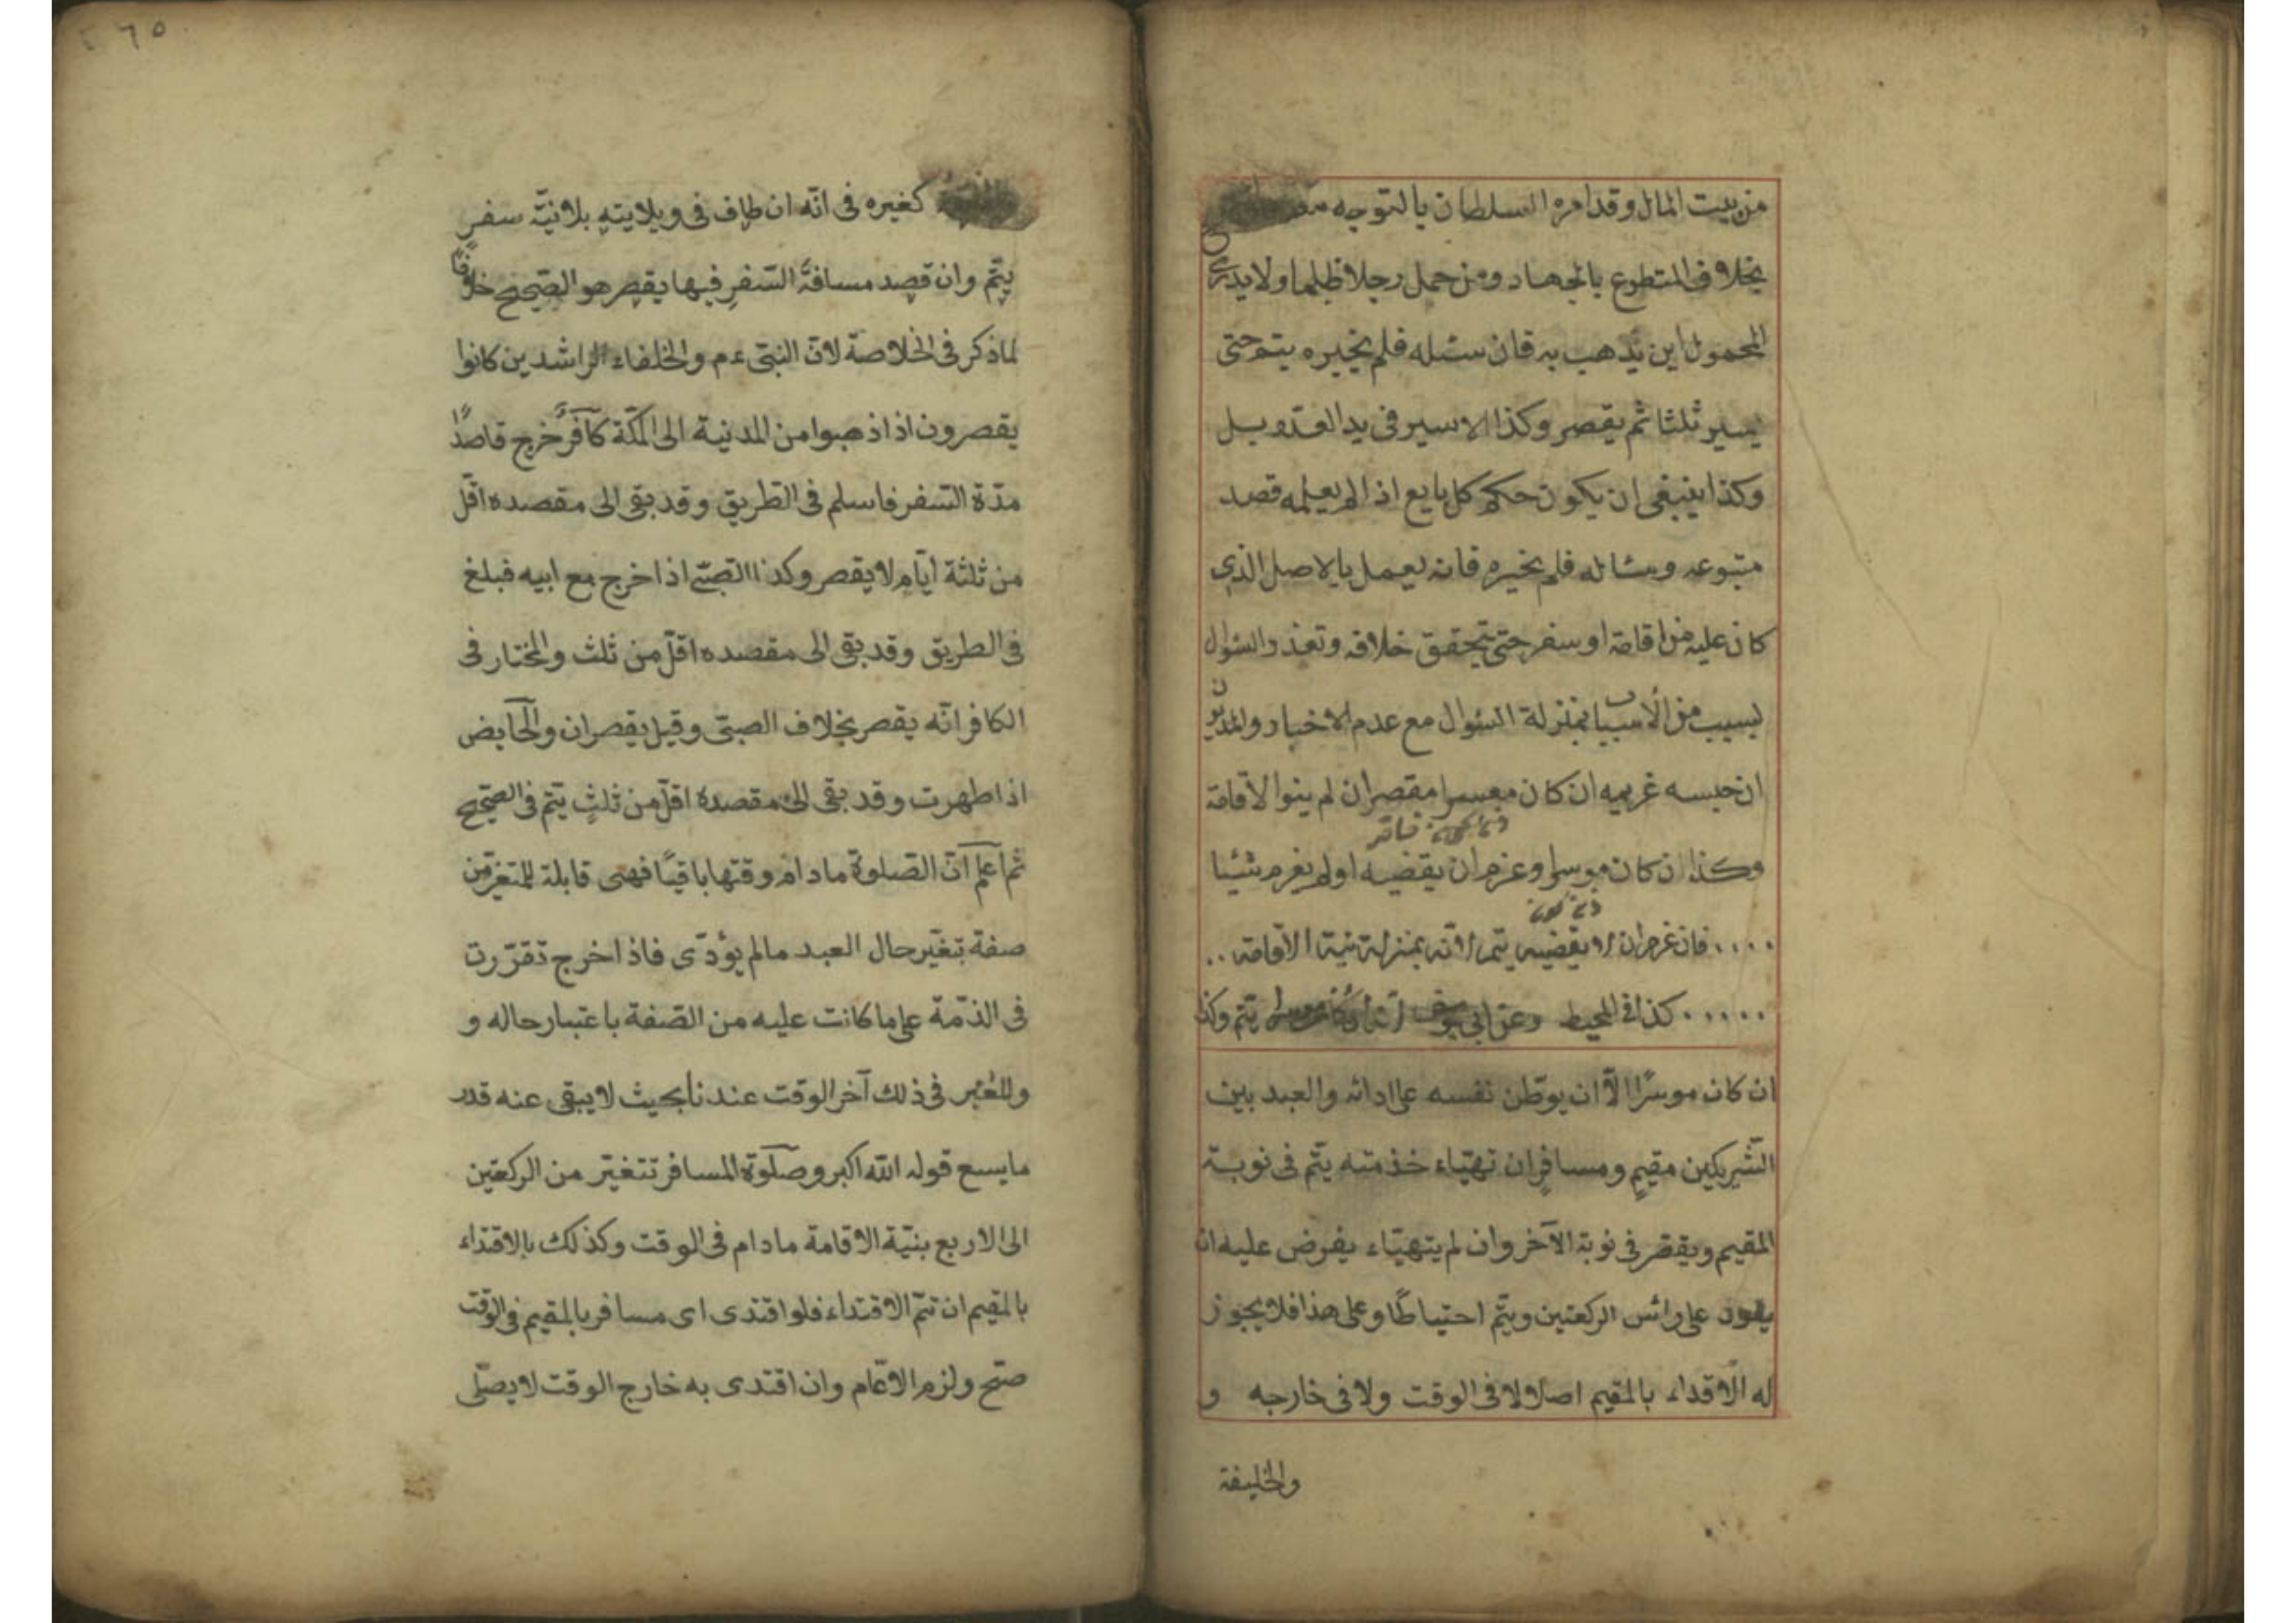 من بيت المال وقد امره السلطان بالتوجه
بخلاف المتطوع بالجهاد ومن حمل رجلا ظلما ولا يدرى
المحمول اين يذهب به فان سئله فلم يخبره يتم حتى
يسير ثلثا ثم يقصر وكذا الاسير فى يد العدو بل
وكذا ينبغى ان يكون حكم كل بايع اذا لم يعلمه قصد
متبوعه وسئاله فلم يخبره فانه يعمل بالاصل الذى
كان عليه من اقامة او سفر حتى يتحقق خلافه وتعذر السئوال
لسبب من الأسباب بمنزلة السئوال مع عدم الاخبار والمديون
ان حبسه غريمه ان كان معسرا مقصران لم ينوا الاقامة
وكذا ان كان موسرا وعزم ان يقضيه اولم يغرم شئيا
فان غرم ان لا يقضيه يتم لانه بمنزلة نية الاقامة
كذا فى المحيط وعن ابى يوسف يتم وكذا
ان كان موسرًا الّا ان يوّطن نفسه على ادائه والعبد بين
الشّريكين مقيمٍ ومسافرٍ ان تهيّاء خذمته يتّم فى نوبة
المقيم ويقصر فى نوبة الآخر وان لم يتهيّاء يفرض عليه ان
يقعود على رائس الركعتين ويتّم احتياطًا وعلى هذا فلا يجوز
له الاقداء بالمقيم اصلا لا فى الوقت ولا فى خارجه و
والخليفة
٢٦٥
كغيره فى انّه ان طاف فى ويلايته بلانيّة سفر
يتّم وان قصد مسافة السّفرِ فيها يقصر هو الصّحيح خلافًا
لما ذكر فى الخلاصة لانّ النبّى ءم والخلفاء الراشدين كانوا
يقصرون اذا ذهبوا من المدنية الى المكّة كآفرٌ خرج قاصدًا
مدّة السّفر فاسلم فى الطريق وقد بقى الى مقصده اقّل
من ثلثة ايّام لا يقصر وكذا الصّبى اذا خرج مع ابيه فبلغ
فى الطريق وقد بقى الى مقصده اقلّ من ثلث والمختار فى
الكافر انّه يقصر بخلاف الصبّى وقيل يقصران والحآيض
اذا طهرت وقد بقى الى مقصده اقلّ من ثلثٍ يتّم فى الصّحيح
ثم اعلم انّ الصّلوة مادام وقتها باقيًا فهى قابلة للتغيّر من
صفة بتغيّر حال العبد مالم يؤدّى فاذا خرج تقرّرت
فى الذمّة على ما كانت عليه من الصّفة باعتبار حاله و
وللعُتبر فى ذلك آخر الوقت عندنا بحيث لا يبقى عنه قدر
مايسع قوله الله اكبر وصلٓوة المسافر تتغيّر من الركعتين
الى الاربع بنيّة الاقامة مادام فى الوقت وكذلك بالاقتداء
بالمقيم ان تتّم الاقتداء فلو اقتدى اى مسافر بالمقيم فى الوقت
صّح ولزم الاتمام وان اقتدى به خارج الوقت لا يصّلى